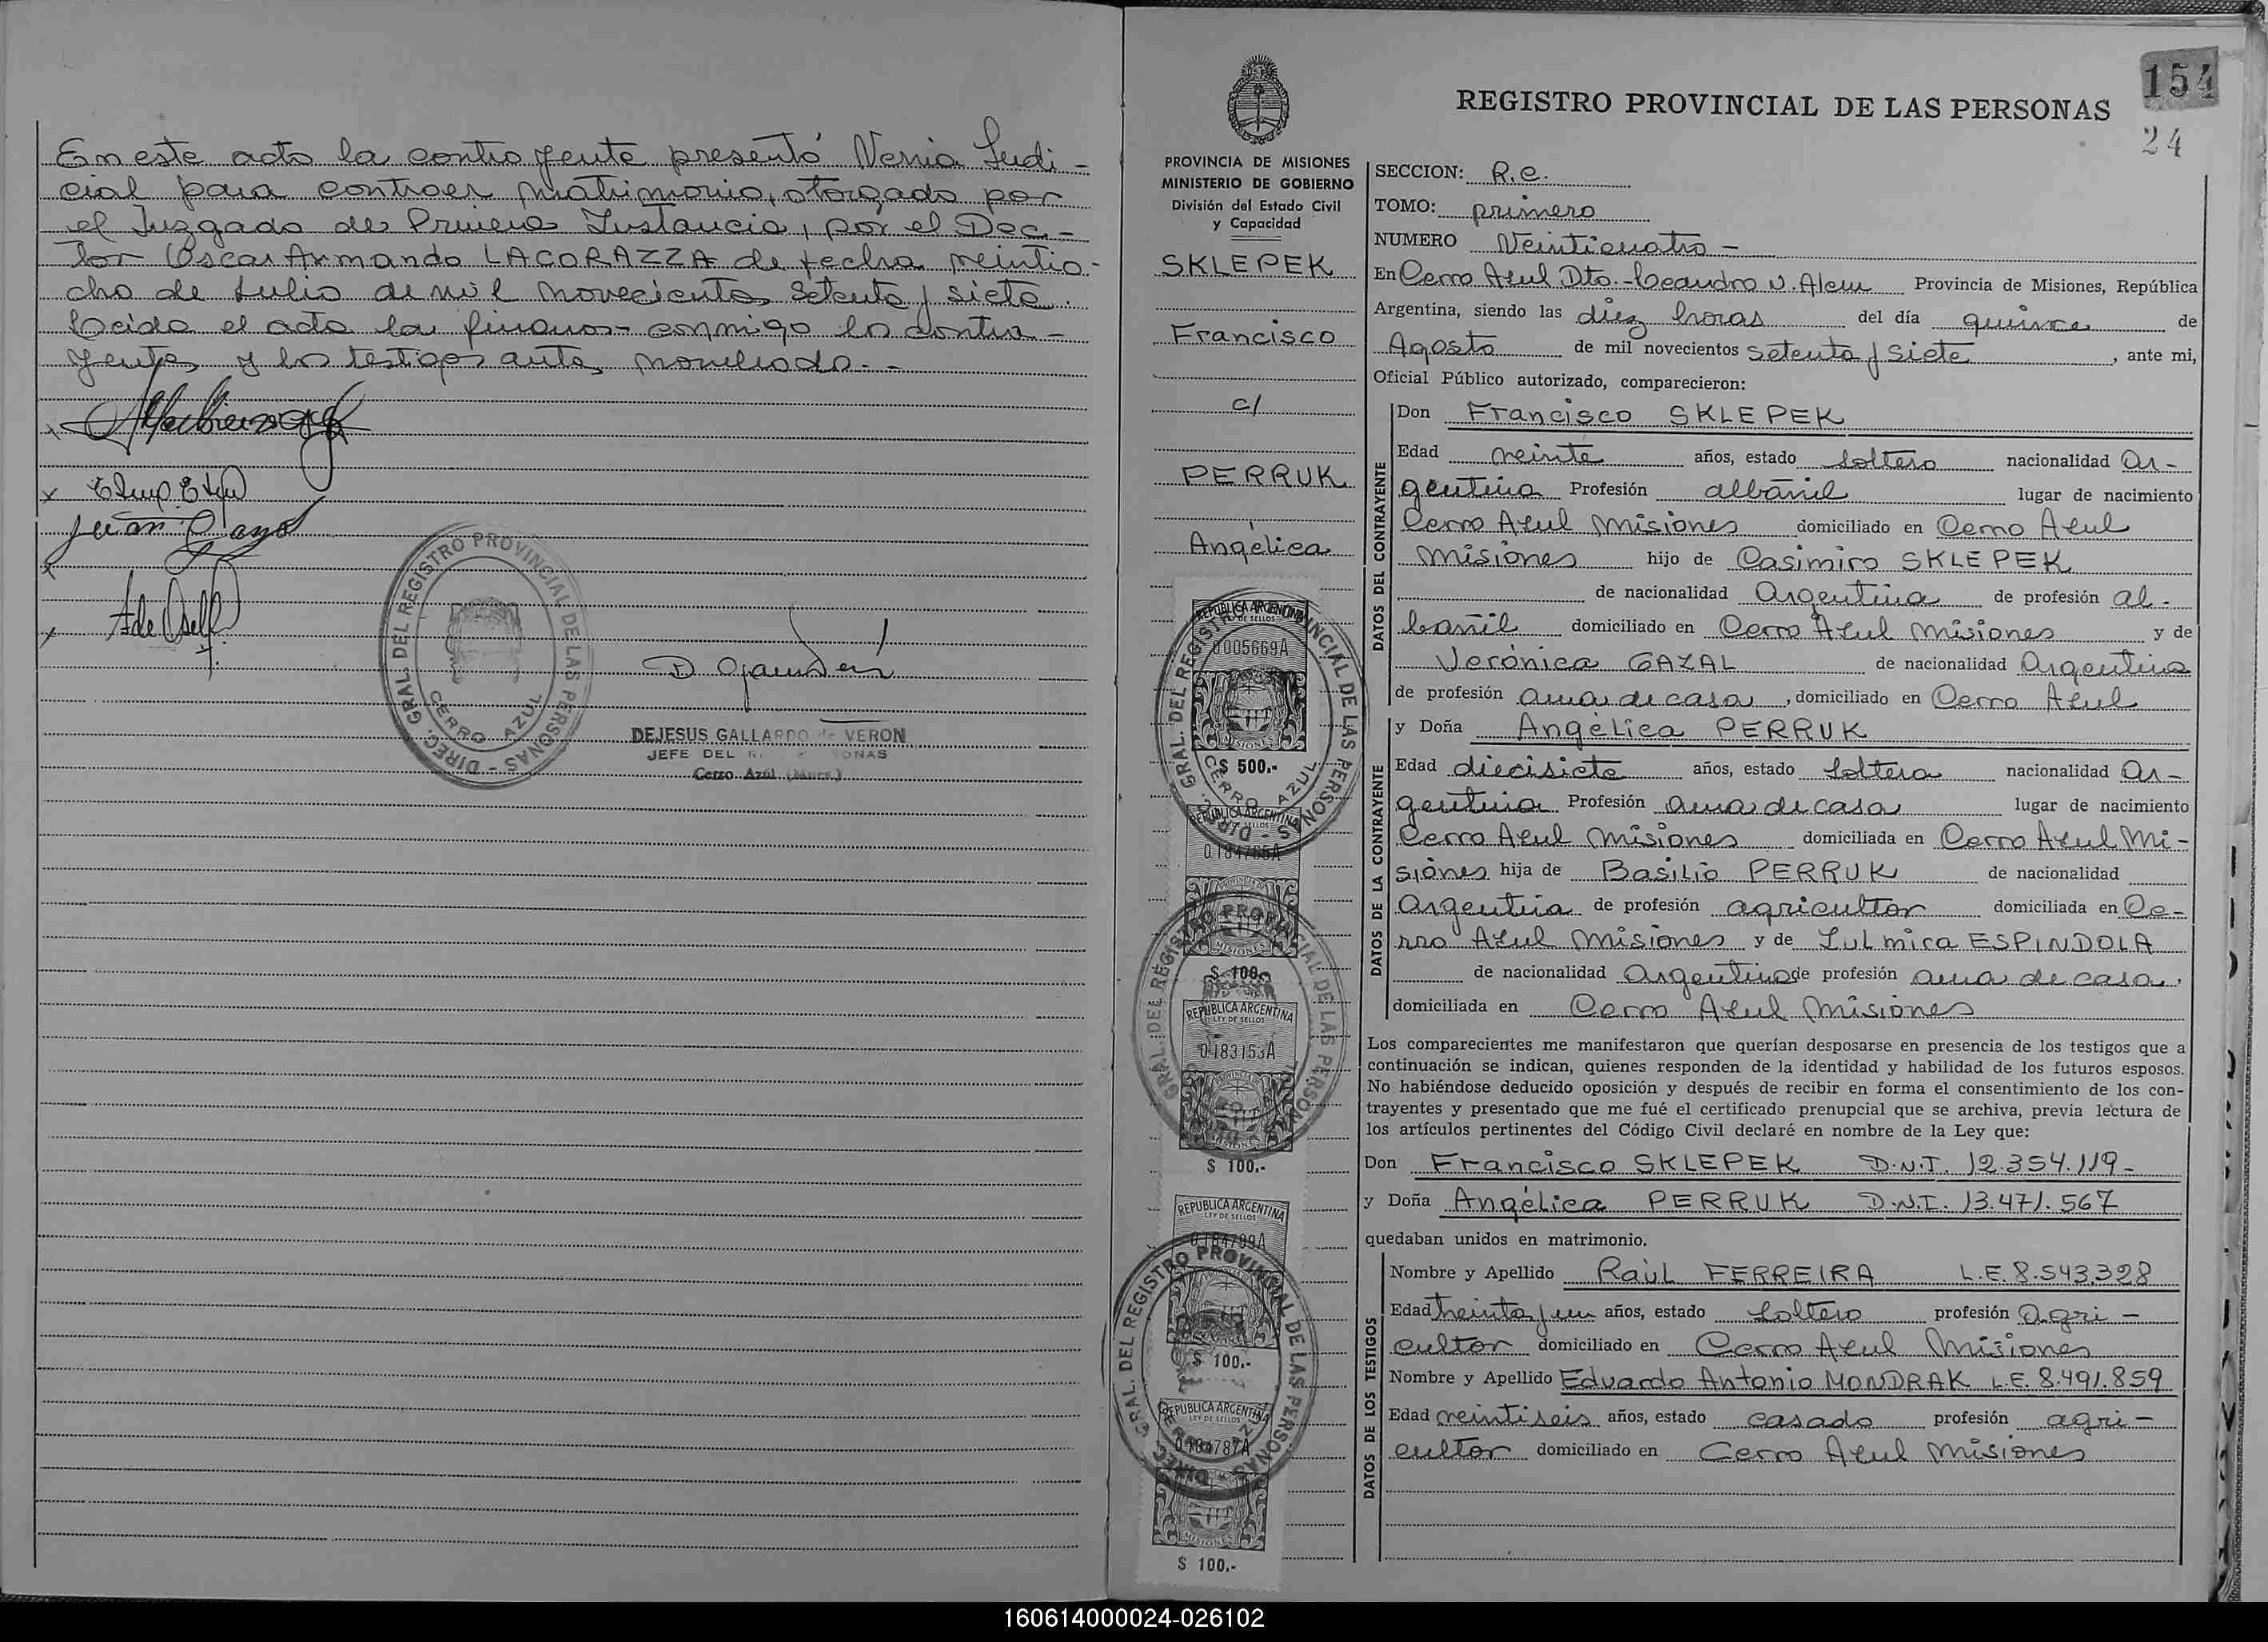 En este acto la contrayente presentó Venia Judi-
cial para contraer matrimonio, otorgado por
el Juzgado de Primera Instancia, por el Doc-
tor Oscar Armando LACORAZZA de fecha veintio-
cho de Julio de mil novecientos setenta y siete.
Leida el acta la firman conmigo los contra-
yentes y los testigos ante nombrado.-
DIREC. GRAL. DEL REGISTRO PROVINCIAL DE LAS PERSONAS
CERRO AZUL
DEJESUS GALLARDO de VERON
JEFE DEL
Cerro Azul
154
24
REGISTRO PROVINCIAL DE LAS PERSONAS
PROVINCIA DE MISIONES
MINISTERIO DE GOBIERNO
División del Estado Civil
y Capacidad
SKLEPEK
Francisco
c/
PERRUK
Angélica
REPUBLICA ARGENTINA
LEY DE SELLOS
0005669A
$ 500.-
REPUBLICA ARGENTINA
0184765A
$ 100.-
REPUBLICA ARGENTINA
LEY DE SELLOS
0183153A
$ 100.-
REPUBLICA ARGENTINA
LEY DE SELLOS
0184799A
$ 100.-
REPUBLICA ARGENTINA
LEY DE SELLOS
0184787A
$ 100.-
SECCION: R.C.
TOMO: primero
NUMERO Veinticuatro -
En Cerro Azul Dto.-Leandro N. Alem Provincia de Misiones, República
Argentina, siendo las diez horas del día quince de
Agosto de mil novecientos setenta y siete, ante mi,
Oficial Público autorizado, comparecieron:
DATOS DEL CONTRAYENTE
Don Francisco SKLEPEK
Edad veinte años, estado soltero nacionalidad Ar-
gentina Profesión albañil lugar de nacimiento
Cerro Azul Misiones domiciliado en Cerro Azul
Misiones hijo de Casimiro SKLEPEK
de nacionalidad Argentina de profesión al-
bañil domiciliado en Cerro Azul Misiones y de
Verónica GAZAL de nacionalidad Argentina
de profesión ama de casa, domiciliado en Cerro Azul
DATOS DE LA CONTRAYENTE
y Doña Angélica PERRUK
Edad diecisiete años, estado soltera nacionalidad Ar-
gentina Profesión ama de casa lugar de nacimiento
Cerro Azul Misiones domiciliada en Cerro Azul Mi-
siones hija de Basilio PERRUK de nacionalidad
Argentina de profesión agricultor domiciliada en Ce-
rro Azul Misiones y de Zulmira ESPINDOLA
de nacionalidad Argentina de profesión ama de casa,
domiciliada en Cerro Azul Misiones
Los comparecientes me manifestaron que querían desposarse en presencia de los testigos que a
continuación se indican, quienes responden de la identidad y habilidad de los futuros esposos.
No habiéndose deducido oposición y después de recibir en forma el consentimiento de los con-
trayentes y presentado que me fué el certificado prenupcial que se archiva, previa lectura de
los artículos pertinentes del Código Civil declaré en nombre de la Ley que:
Don Francisco SKLEPEK D.N.I. 12.354.119-
y Doña Angélica PERRUK D.N.I. 13.471.567
quedaban unidos en matrimonio.
DATOS DE LOS TESTIGOS
Nombre y Apellido Raúl FERREIRA L.E. 8.543.328
Edad treinta y un años, estado soltero profesión agri-
cultor domiciliado en Cerro Azul Misiones
Nombre y Apellido Eduardo Antonio MONDRAK L.E. 8.491.859
Edad veintiseis años, estado casado profesión agri-
cultor domiciliado en Cerro Azul Misiones
160614000024-026102